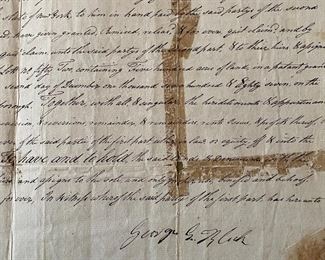 State of New York to him in hand paid the said partys of the second
have given granted, remised, releas'd & for ever quit claimed and by
quit claim unto the said partys of the second part, & to their hires & assigns
lot No fifty Two containing Five hundred acres of land, in a patent
second day of December one thousand seven hundred & Eighty seven, on the
Together with all & singular the hereditaments & appurtenances
reversions, remainder & remainders rents Issues & profits thereof
of the said partys of the first part either in law or equity off & unto the
To have and to hold the said
and assigns to the sole and only proper use, benefit and behoof
for ever, In witness whereof the said party of the first part has hereunto
George G.